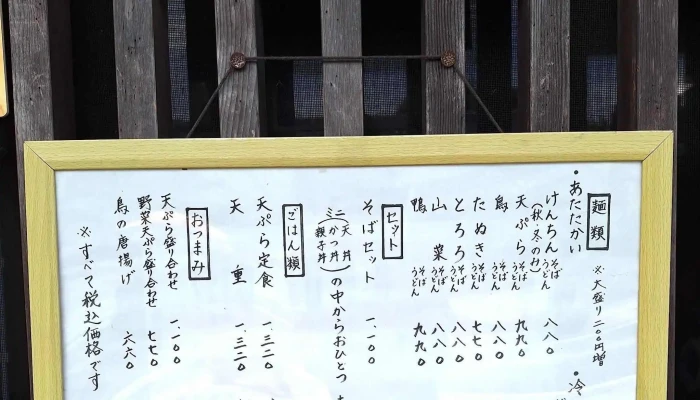 麺類 ※大盛り二〇〇円増
・あたたかい
けんちん そば うどん 八八〇
(秋・冬のみ)
天ぷら そば うどん 九九〇
鳥 そば うどん 八八〇
たぬき そば うどん 七七〇
とろろ そば うどん 八八〇
山菜 そば うどん 八八〇
鴨 そば うどん 九九〇
・冷
セット
そばセット 一、一〇〇
(ミニ 天丼 かつ丼 親子丼)の中からおひとつ
ごはん類
天ぷら定食 一、三二〇
天重 一、三二〇
おつまみ
天ぷら盛り合わせ 一、一〇〇
野菜天ぷら盛り合わせ 七七〇
鳥の唐揚げ 六六〇
※すべて税込価格です